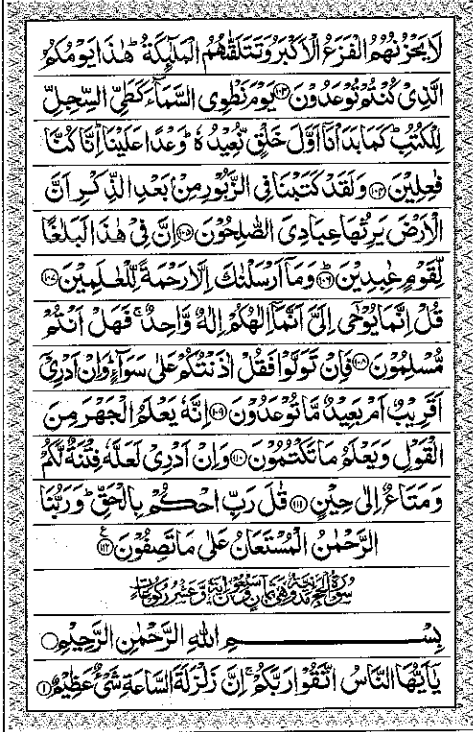 لَا يَحْزُنُهُمُ الْفَزَعُ الْاَكْبَرُ وَتَتَلَقّٰىهُمُ الْمَلٰٓئِكَةُ ؕ هٰذَا يَوْمُكُمُ
الَّذِیْ كُنْتُمْ تُوْعَدُوْنَ ۝۱۰۳ يَوْمَ نَطْوِی السَّمَآءَ كَطَیِّ السِّجِلِّ
لِلْكُتُبِ ؕ كَمَا بَدَاْنَاۤ اَوَّلَ خَلْقٍ نُّعِيْدُهٗ ؕ وَعْدًا عَلَيْنَا ؕ اِنَّا كُنَّا
فٰعِلِيْنَ ۝۱۰۴ وَلَقَدْ كَتَبْنَا فِی الزَّبُوْرِ مِنْۢ بَعْدِ الذِّكْرِ اَنَّ
الْاَرْضَ يَرِثُهَا عِبَادِیَ الصّٰلِحُوْنَ ۝۱۰۵ اِنَّ فِیْ هٰذَا لَبَلٰغًا
لِّقَوْمٍ عٰبِدِيْنَ ۝۱۰۶ وَمَاۤ اَرْسَلْنٰكَ اِلَّا رَحْمَةً لِّلْعٰلَمِيْنَ ۝۱۰۷
قُلْ اِنَّمَا يُوْحٰۤی اِلَیَّ اَنَّمَاۤ اِلٰهُكُمْ اِلٰهٌ وَّاحِدٌ ۚ فَهَلْ اَنْتُمْ
مُّسْلِمُوْنَ ۝۱۰۸ فَاِنْ تَوَلَّوْا فَقُلْ اٰذَنْتُكُمْ عَلٰی سَوَآءٍ ؕ وَاِنْ اَدْرِیْۤ
اَقَرِيْبٌ اَمْ بَعِيْدٌ مَّا تُوْعَدُوْنَ ۝۱۰۹ اِنَّهٗ يَعْلَمُ الْجَهْرَ مِنَ
الْقَوْلِ وَيَعْلَمُ مَا تَكْتُمُوْنَ ۝۱۱۰ وَاِنْ اَدْرِیْ لَعَلَّهٗ فِتْنَةٌ لَّكُمْ
وَمَتَاعٌ اِلٰی حِيْنٍ ۝۱۱۱ قٰلَ رَبِّ احْكُمْ بِالْحَقِّ ؕ وَرَبُّنَا
الرَّحْمٰنُ الْمُسْتَعَانُ عَلٰی مَا تَصِفُوْنَ ۝۱۱۲
سُوْرَةُ الْحَجِّ مَدَنِيَّةٌ وَّهِیَ ثَمَانٌ وَّسَبْعُوْنَ اٰيَةً وَّعَشْرُ رُكُوْعَاتٍ
بِسْمِ اللّٰهِ الرَّحْمٰنِ الرَّحِيْمِ
يٰۤاَيُّهَا النَّاسُ اتَّقُوْا رَبَّكُمْ ۚ اِنَّ زَلْزَلَةَ السَّاعَةِ شَیْءٌ عَظِيْمٌ ۝۱